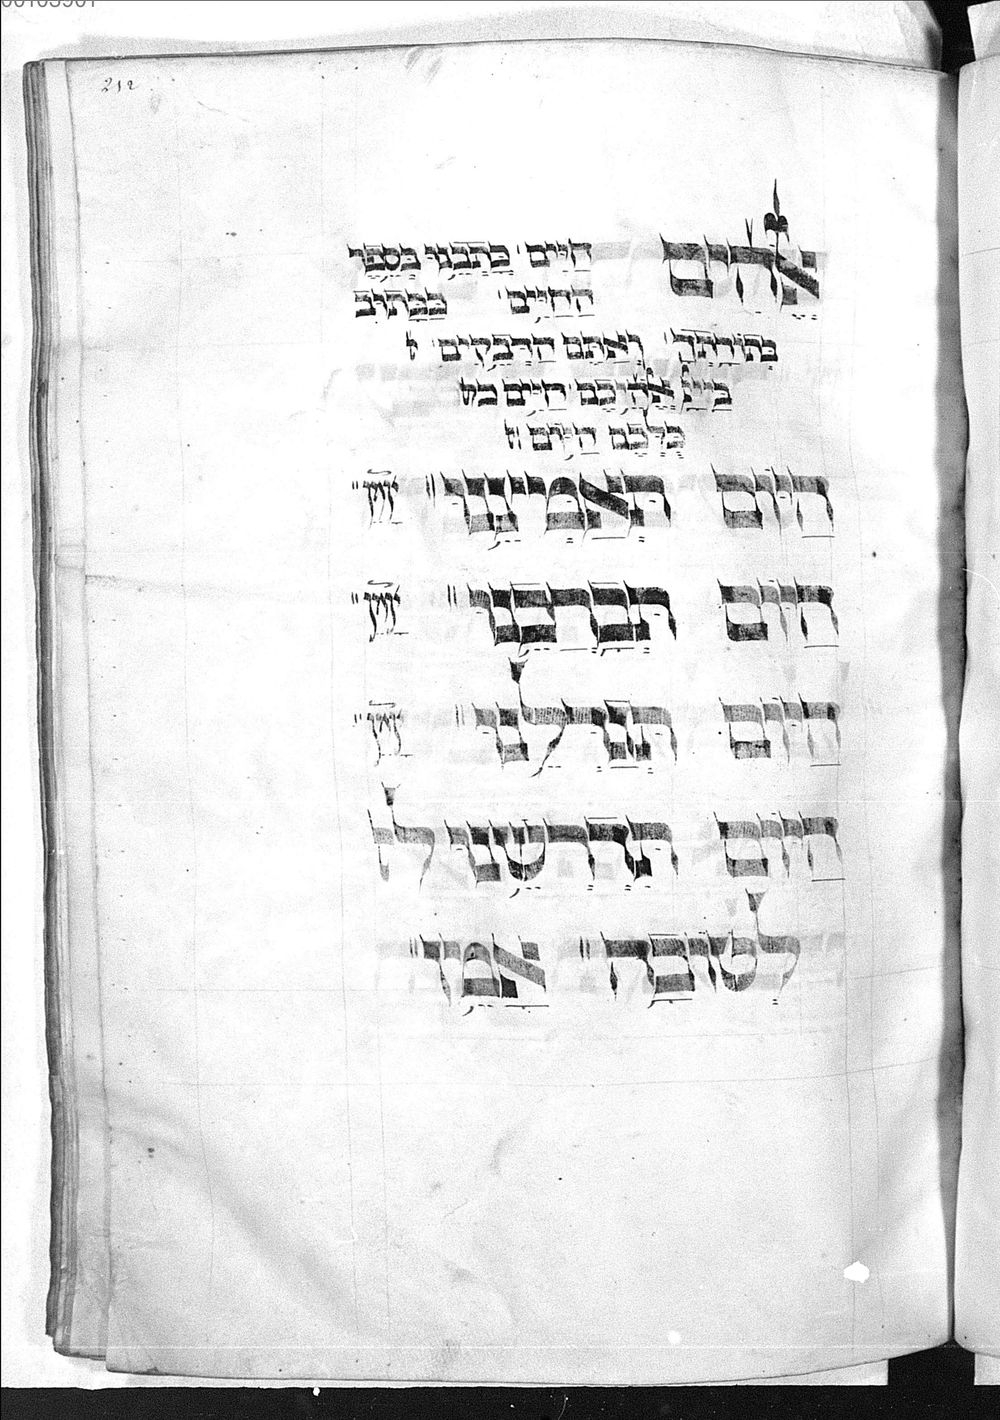 212
אלהים חיים כתבנו בספר
החיים ככתוב
בתורתך ואתם הדבקים
ביי אלהיכם חיים
כלכם היום
היום תאמיצנו אמן
היום תברכנו אמן
היום תגדלנו אמן
היום תדרשינו
לטובה אמן